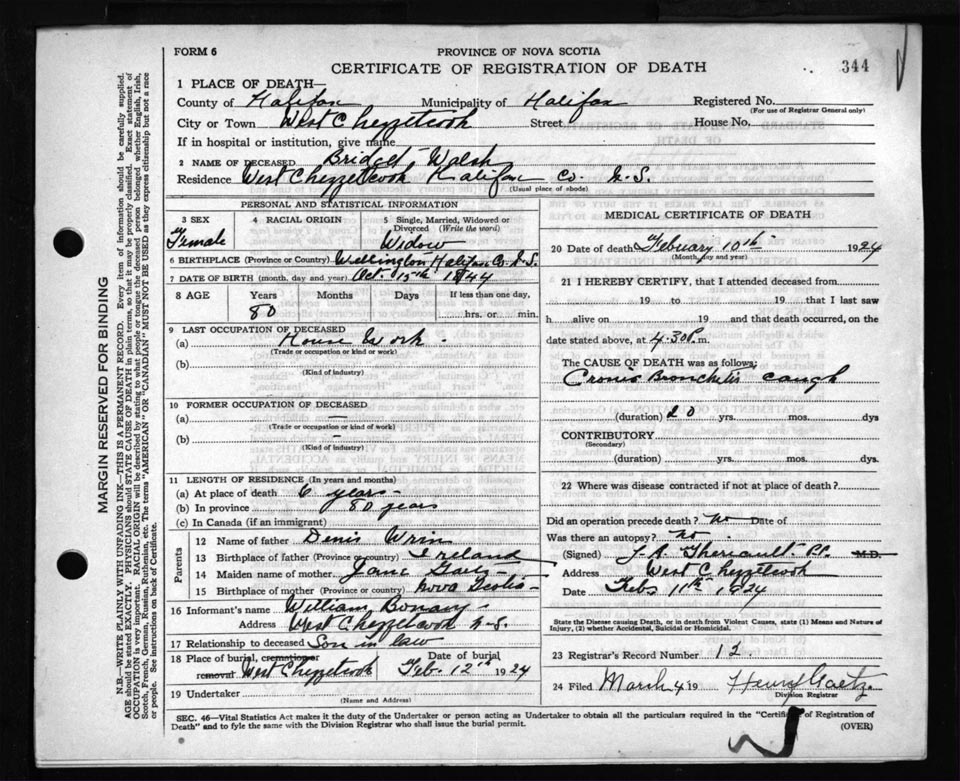 FORM 6
PROVINCE OF NOVA SCOTIA
CERTIFICATE OF REGISTRATION OF DEATH
344
1 PLACE OF DEATH—
County of Halifax Municipality of Halifax Registered No.
(For use of Registrar General only)
City or Town West Chezzetcook Street House No.
If in hospital or institution, give name
2 NAME OF DECEASED Bridget Walsh
Residence West Chezzetcook Halifax Co. N.S.
(Usual place of abode)
PERSONAL AND STATISTICAL INFORMATION
3 SEX Female
4 RACIAL ORIGIN
5 Single, Married, Widowed or Divorced (Write the word) Widow
6 BIRTHPLACE (Province or Country) Wellington Halifax Co. N.S.
7 DATE OF BIRTH (month, day and year) Oct. 15th 1844
8 AGE Years Months Days If less than one day,
80 hrs. or min.
9 LAST OCCUPATION OF DECEASED
(a) House Work
(Trade or occupation or kind or work)
(b)
(Kind of industry)
10 FORMER OCCUPATION OF DECEASED
(a) —
(Trade or occupation or kind of work)
(b) —
(Kind of industry)
11 LENGTH OF RESIDENCE (In years and months)
(a) At place of death 6 years -
(b) In province 80 years
(c) In Canada (if an immigrant)
Parents
12 Name of father Denis Wrin
13 Birthplace of father (Province or country) Ireland
14 Maiden name of mother Jane Gaetz
15 Birthplace of mother (Province or country) Nova Scotia
16 Informant's name William
Address West Chezzetcook N-S.
17 Relationship to deceased Son in law
18 Place of burial, cremation or removal West Chezzetcook Date of burial Feb. 12th 1924
19 Undertaker
(Name and Address)
MEDICAL CERTIFICATE OF DEATH
20 Date of death Febuary 10th 1924
(Month, day and year)
21 I HEREBY CERTIFY, that I attended deceased from
19 to 19 that I last saw
h alive on 19 and that death occurred, on the
date stated above, at 4.30 P. m.
The CAUSE OF DEATH was as follows;
Cronic Bronchitis caugh
(duration) 20 yrs. mos. dys
CONTRIBUTORY
(Secondary)
(duration) yrs. mos. dys
22 Where was disease contracted if not at place of death?
Did an operation precede death? No Date of
Was there an autopsy? No.
(Signed) J. A. Theriault P.P. M.D.
Address West Chezzetcook
Date Feb. 11th 1924
State the Disease causing Death, or in death from Violent Causes, state (1) Means and Nature of
Injury, (2) whether Accidental, Suicidal or Homicidal.
23 Registrar's Record Number 12
24 Filed March 4 19 Henry Gaetz
Division Registrar
SEC. 46—Vital Statistics Act makes it the duty of the Undertaker or person acting as Undertaker to obtain all the particulars required in the "Certificate of Registration of
Death" and to fyle the same with the Division Registrar who shall issue the burial permit.
(OVER)
MARGIN RESERVED FOR BINDING
N.B.—WRITE PLAINLY WITH UNFADING INK—THIS IS A PERMANENT RECORD. Every item of information should be carefully supplied.
AGE should be stated EXACTLY. PHYSICIANS should STATE CAUSE OF DEATH in plain terms, so that it may be properly classified. Exact statement of
OCCUPATION is very important. RACIAL ORIGIN will be described by stating to what people or tongue the deceased person belonged whether English, Irish,
Scotch, French, German, Russian, Ruthenian, etc. The terms "AMERICAN" OR "CANADIAN" MUST NOT BE USED as they express citizenship but not a race
or people. See instructions on back of Certificate.